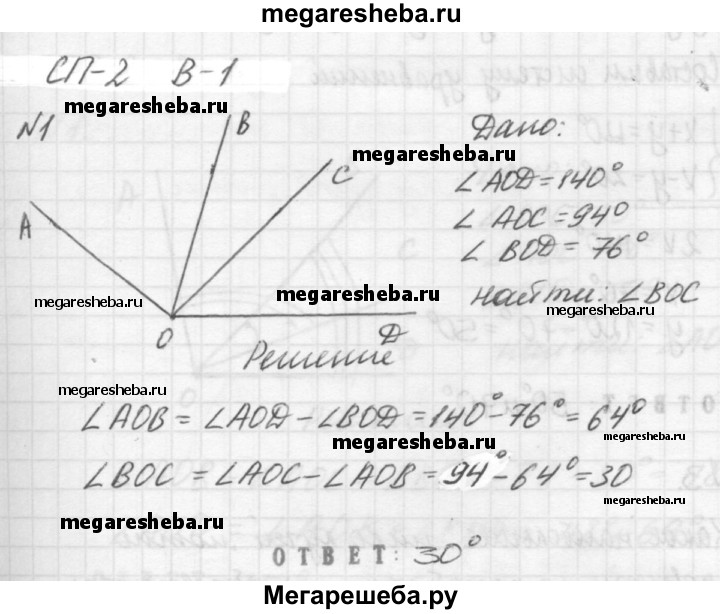 megaresheba.ru
СП-2 В-1
megaresheba.ru
№1
B
Дано:
megaresheba.ru
C
∠AOD=140°
A
∠AOC=94°
∠BOD=76°
megaresheba.ru
megaresheba.ru
найти: ∠BOC
megaresheba.ru
O
D
Решение
megaresheba.ru
∠AOB = ∠AOD-∠BOD=140°-76°=64°
megaresheba.ru
megaresheba.ru
∠BOC = ∠AOC-∠AOB=94°-64°=30
megaresheba.ru
megaresheba.ru
ОТВЕТ: 30°
Мегарешеба.ру